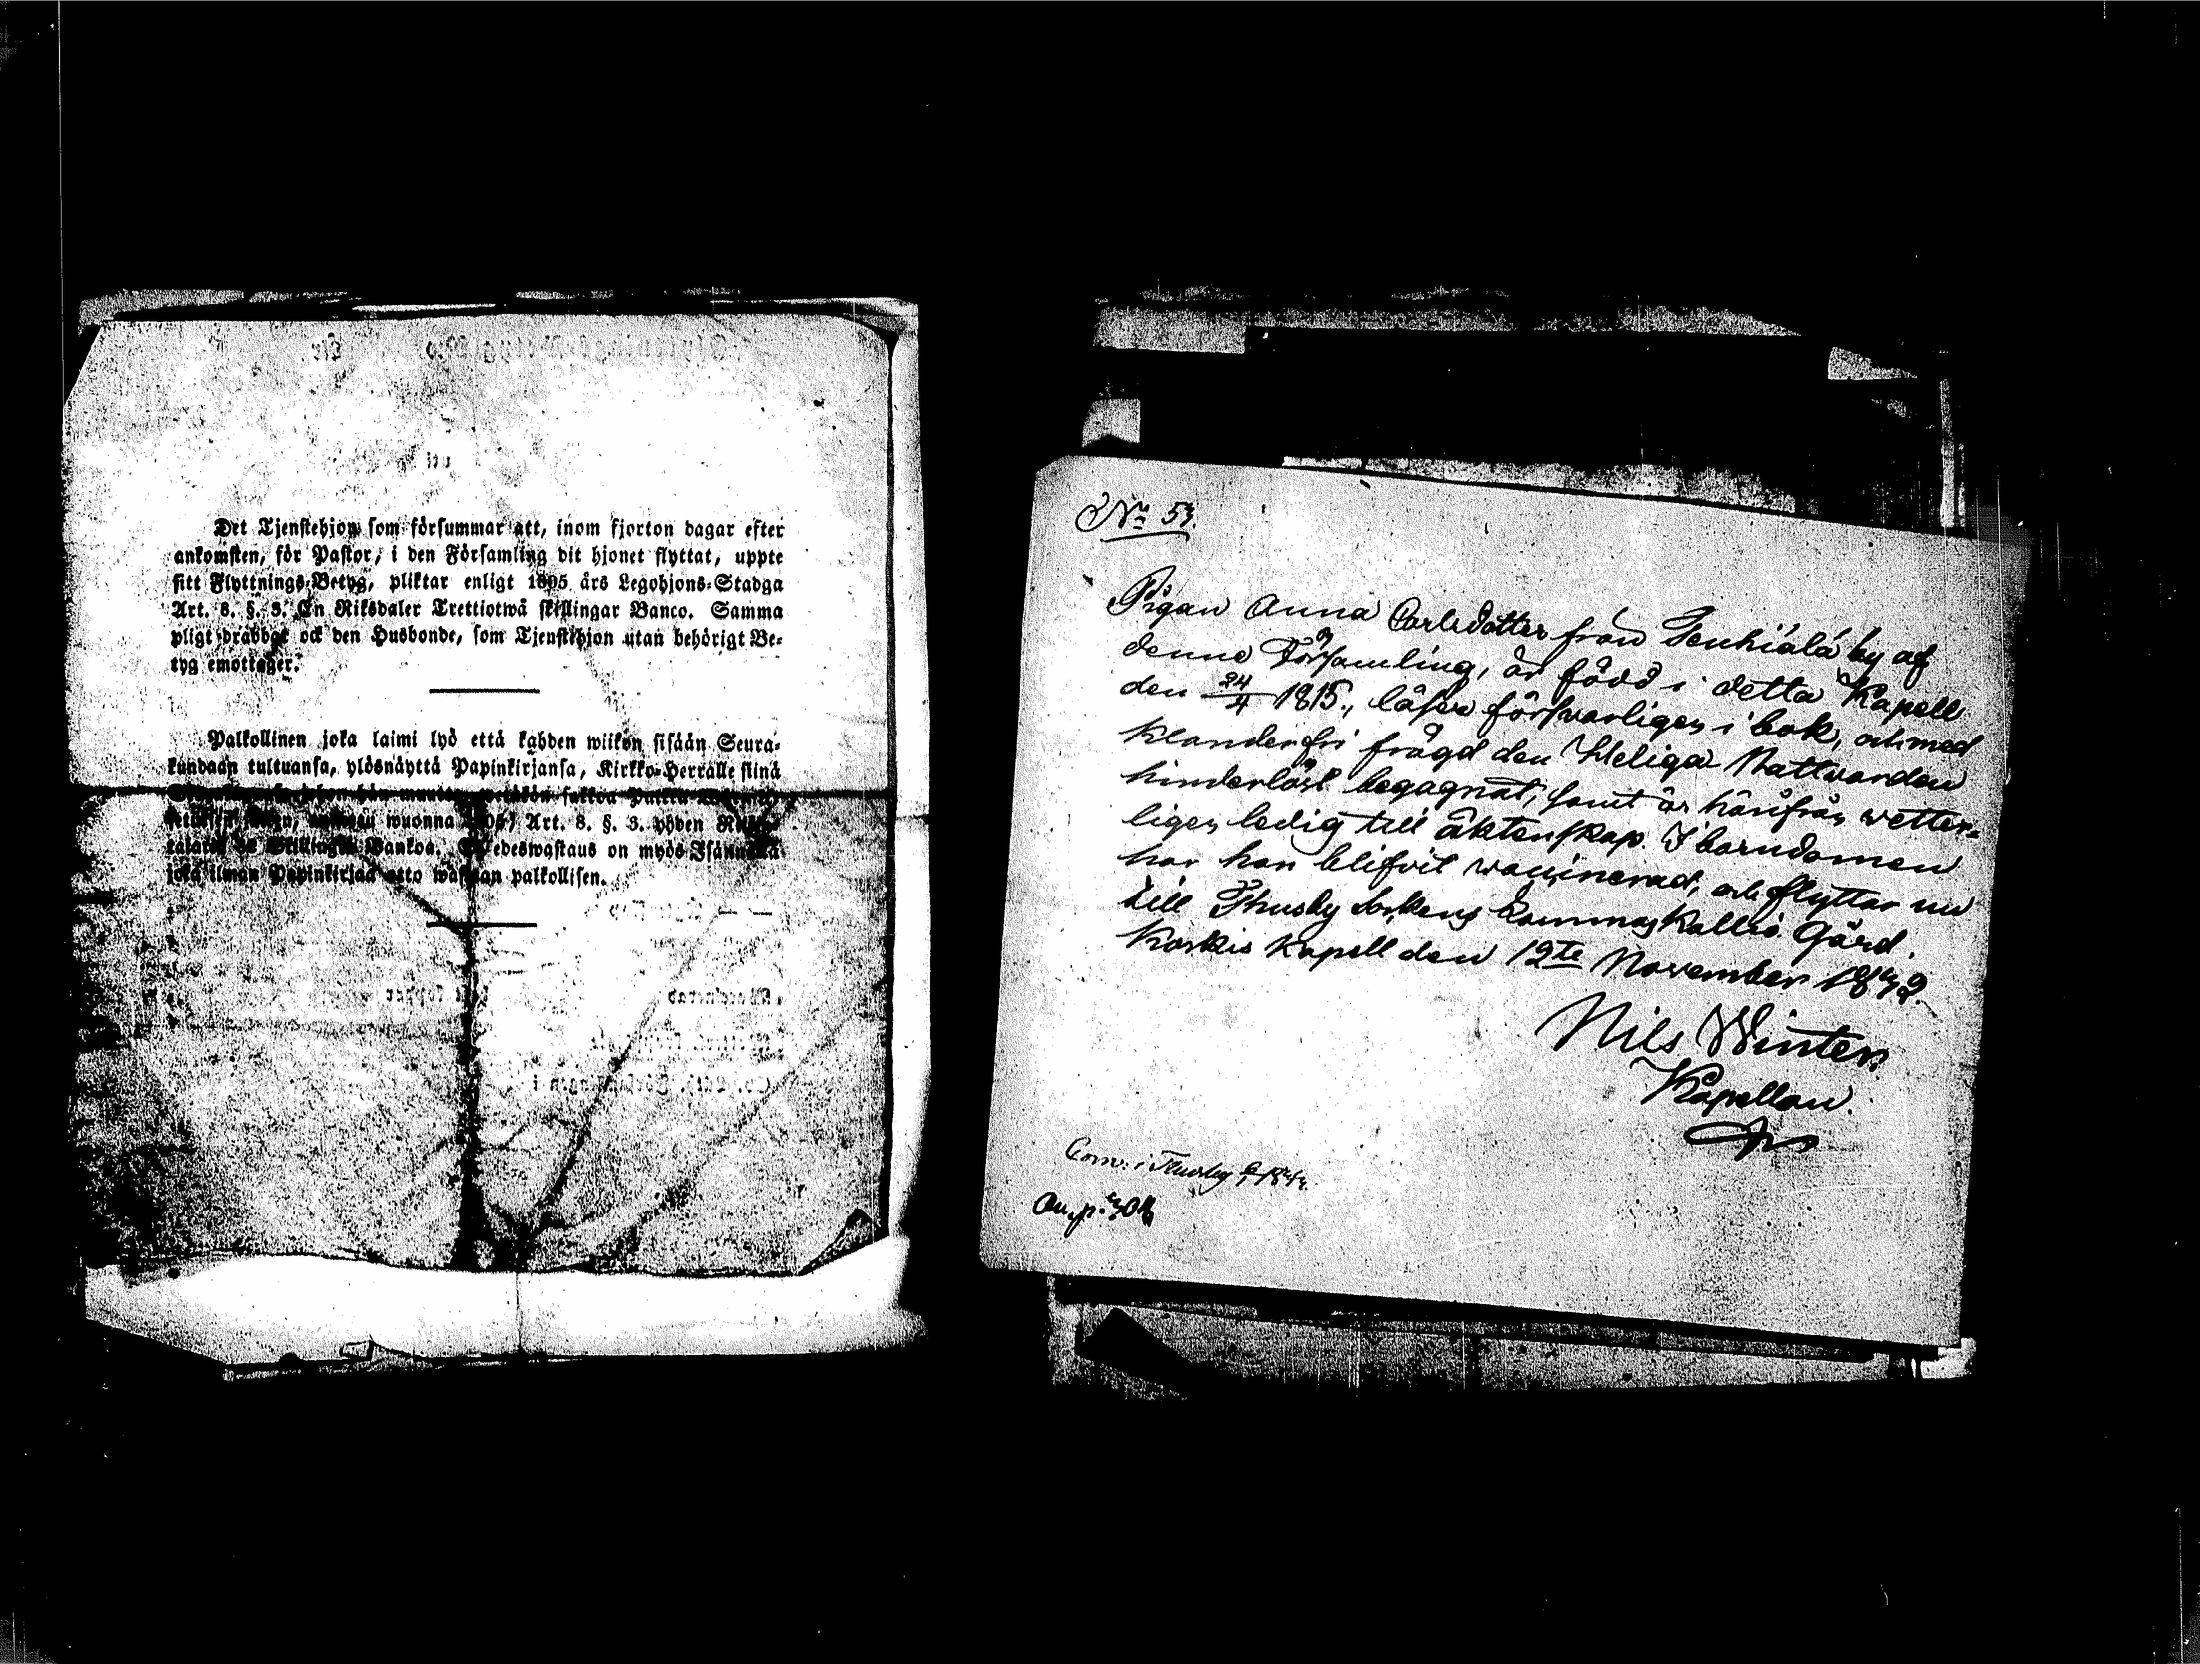 Det Tjenstehjon som försummar att, inom fjorton dagar efter
ankomsten, för Pastor, i den Församling dit hjonet flyttat, uppte
sitt Flyttnings-Betyg, pliktar enligt 1805 års Legohjons-Stadga
Art. 8. §. 3. En Riksdaler Trettiotwå skillingar Banco. Samma
pligt drabbat ock den Husbonde, som Tjenstehjon utan behörigt Be-
tyg emottager.
Palkollinen joka laimi lyö että kahden wiikon sisään Seura-
kundaan tultuansa, ylösnäyttä Papinkirjansa, Kirkko-Herralle siinä
wuonna Art. 8. §. 3. yhden
Bankoa. on myös
joka ilman Papinkirjaa otto palkollisen.
No 57.
Pigan Anna Carlsdotter från Jenhiälä by af
denna Församling, är född i detta Kapell
den 24/4 1815, läser försvarligen i bok, och med
klanderfri frägd den Heliga Nattvarden
hinderlöst begagnat, samt är härifrån wetter-
ligen ledig till äktenskap. I barndomen
har hon blifvit waccinerad, och flyttar nu
till Thusby Sockens Kallio Gård.
Korkis Kapell den 12te November 1842.
Nils Winter
Kapellan.
i Thusby